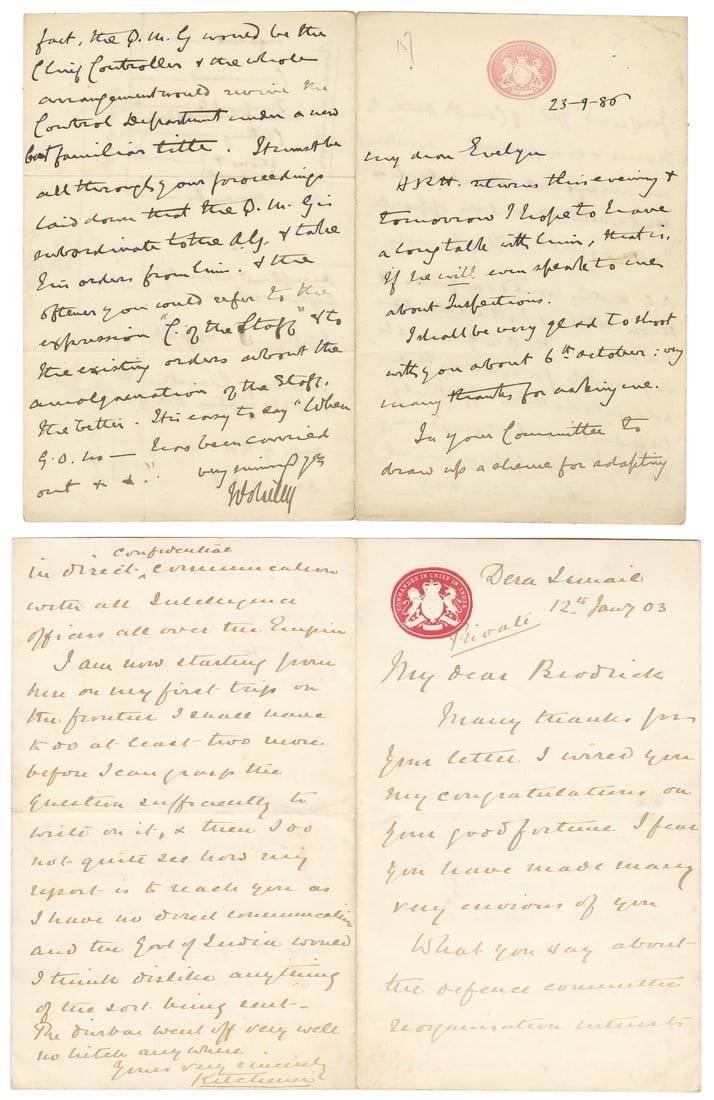 15
WAR OFFICE
23-9-86
My dear Evelyn
H.R.H. returns this evening &
tomorrow I hope to have
a long talk with him, that is,
if he will even speak to me
about Inspections.
I shall be very glad to shoot
with you about 6th October: very
many thanks for asking me.
In your Committee to
draw up a scheme for adapting
fact, the Q.M.G would be the
Chief Controller & the whole
arrangement would revive the
Control Department under a new
but familiar title. It must be
all through your proceedings
laid down that the Q.M.G is
subordinate to the A.G. & take
his orders from him. & the
oftener you could refer to the
expression "C. of the Staff" & to
the existing orders about the
amalgamation of the Staff,
the better. It is easy to say "When
G.O. No — has been carried
out & &."
very sincerely yrs
Wolseley
COMMANDER IN CHIEF IN INDIA
Dera Ismail
12th Jany 03
Private
My dear Brodrick
Many thanks for
your letter I wired you
my congratulations on
your good fortune I fear
you have made many
very envious of you
What you say about
the defence committee
reorganisation interests
in direct confidential communication
with all Intelligence
officers all over the Empire
I am now starting from
here on my first trip on
the frontier I shall have
to do at least two more
before I can grasp the
question sufficiently to
write on it, & then I do
not quite see how my
report is to reach you as
I have no direct communication
and the Govt of India would
I think dislike anything
of the sort being sent -
The durbar went off very well
no hitch anywhere
Yours very sincerely
Kitchener